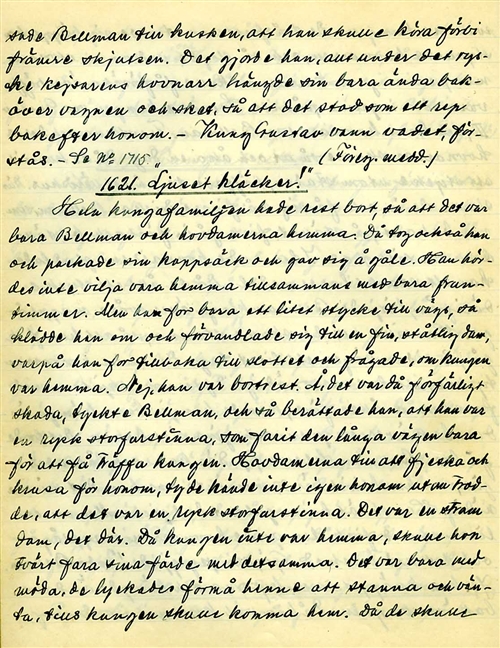 sade Bellman till kusken, att han skulle köra förbi
främre skjutsen. Det gjorde han, aut under det rys-
ke kejsarens hovnarr hängde sin bara ända bak-
över vagnen och sket, så att det stod som ett rep
bakefter honom. – Kung Gustav vann vadet, för-
stås. – Se No 1715 „ (Föreg. medd.)
1621. „Ljuset kläcker!"
Hela kungafamiljen hade rest bort, så att det var
bara Bellman och hovdamerna hemma. Då tog också han
och packade sin kappsäck och gav sig å gåle. Han hör-
des inte vilja vara hemma tillsammans med bara frun-
timmer. Men han for bara ett litet stycke till vägs, så
klädde han om och förvandlade sig till en fin, ståtlig dam,
varpå han for tillbaka till slottet och frågade, om kungen
var hemma. Nej, han var bortrest. Å, det var då förfärligt
skada, tyckte Bellman, och så berättade han, att han var
en rysk storfurstinna, som farit den långa vägen bara
för att få träffa kungen. Hovdamerna till att fjeska och
krusa för honom, ty de kände inte igen honom utan trod-
de, att det var en rysk storfurstinna. Det var en stram
dam, det där. Då kungen inte var hemma, skulle hon
tvärt fara sina färde med detsamma. Det var bara med
möda, de lyckades förmå henne att stanna och vän-
ta, tills kungen skulle komma hem. Då de skulle